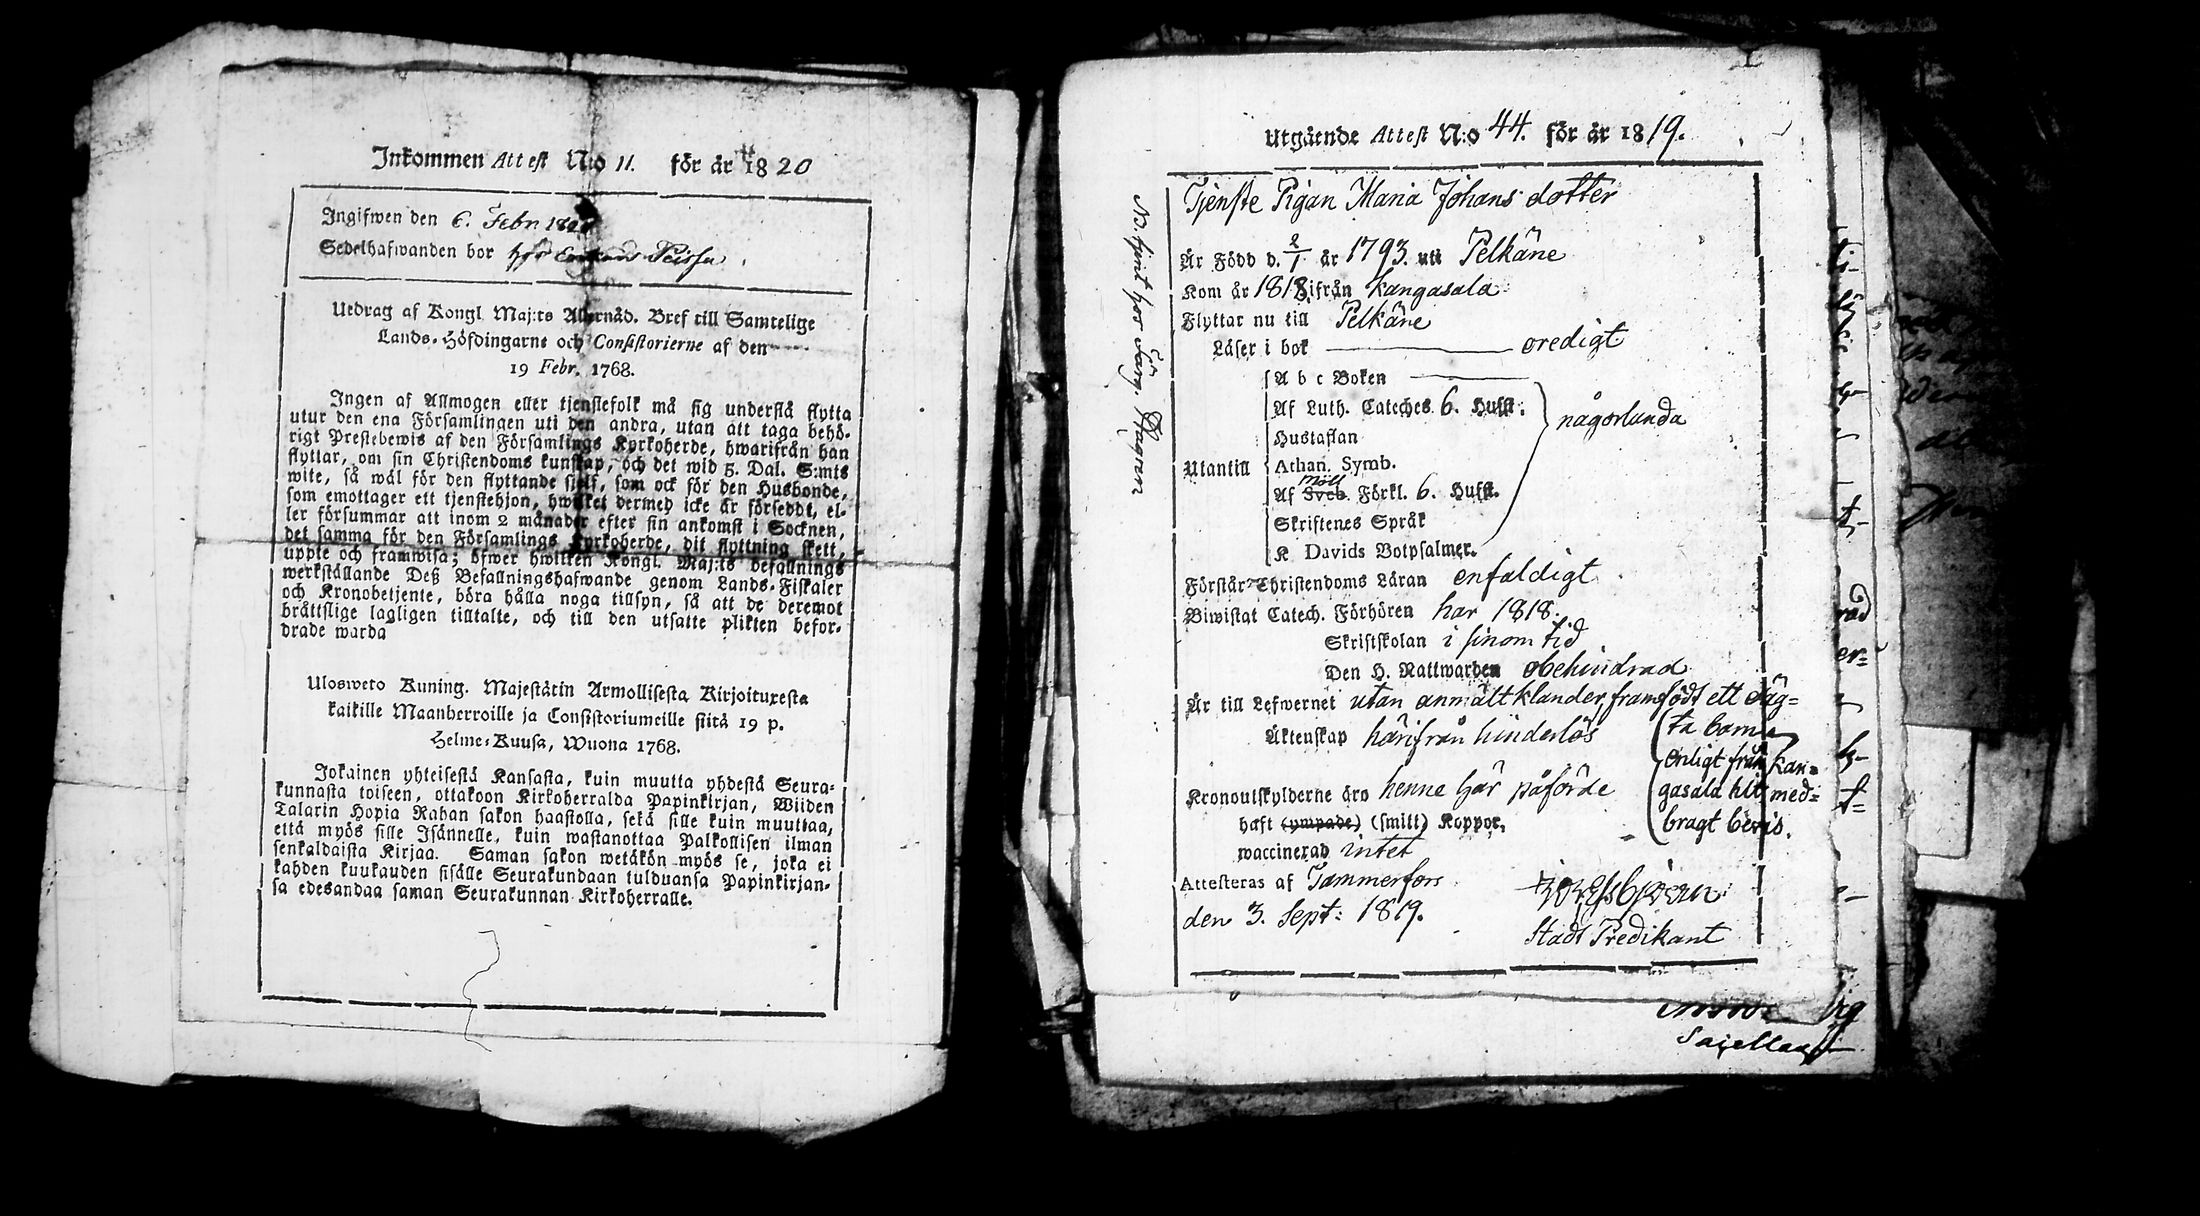 Inkommen Attest N:o 11. för år 1820
Ingifwen den 6. Febr 1820
Sedelhafwanden bor hos
Utdrag af Kongl. Maj:ts Allernåd. Bref till Samtelige
Lands-Höfdingarne och Consistorierne af den
19 Febr. 1768.
Ingen af Allmogen eller tjenstefolk må sig understå flytta
utur den ena Församlingen uti den andra, utan att taga behö-
rigt Prestebewis af den Församlings Kyrkoherde, hwarifrån han
flyttar, om sin Christendoms kunskap, och det wid 5. Dal. S:mts
wite, så wäl för den flyttande sjelf, som ock för den Husbonde,
som emottager ett tjenstehjon, hwilket dermed icke är försedt, el-
ler försummar att inom 2 månader efter sin ankomst i Socknen,
det samma för den Församlings Kyrkoherde, dit flyttning skett,
uppte och framwisa; öfwer hwilken Kongl. Maj:ts befallnings
werkställande Deß Befallningshafwande genom Lands-Fiskaler
och Kronobetjente, böra hålla noga tillsyn, så att de deremot
bråttslige lagligen tilltalte, och till den utsatte plikten befor-
drade warda
Ulosweto Kuning. Majestätin Armollisesta Kirjoituxesta
kaikille Maanherroille ja Consistoriumeille siitä 19 p.
Helme-Kuusa, Wuona 1768.
Jokainen yhteisestä Kansasta, kuin muutta yhdestä Seura-
kunnasta toiseen, ottakoon Kirkoherralda Papinkirjan, Wiiden
Talarin Hopia Rahan sakon haastolla, sekä sille kuin muuttaa,
että myös sille Isännelle, kuin wastanottaa Palkollisen ilman
senkaldaista Kirjaa. Saman sakon wetäkön myös se, joka ei
kahden kuukauden sisälle Seurakundaan tulduansa Papinkirjan-
sa edesandaa saman Seurakunnan Kirkoherralle.
Utgående Attest N:o 44. för år 1819.
Tjenste Pigan Maria Johans dotter
Är Född d. 2/1 år 1793. uti Pelkäne
Kom år 1818. ifrån Kangasala
Flyttar nu till Pelkäne
Läser i bok oredigt
A b c Boken
Af Luth. Cateches 6. Husst.
någorlunda
Hustaflan
Utantill
Athan. Symb.
Möll
Af Sveb. Förkl. 6. Husst.
Skriftenes Språk
K Davids Botpsalmer.
Förstår Christendoms Läran enfaldigt
Biwistat Catech. Förhören har 1818.
Skriftskolan i sinom tid
Den H. Nattwarden obehindrad
Är till Lefwernet utan anmält klander, framfödt ett oäg-
ta barn
Äktenskap härifrån hinderlös
enligt från Kan-
gasala hit med-
bragt bevis.
Kronoutskylderne äro henne här påförde
haft (ympade) (smitt) Koppor.
waccinerad intet
Attesteras af Tammerfors
den 3. Sept: 1819.
Stads Predikant
NB. tjent hos Färg.